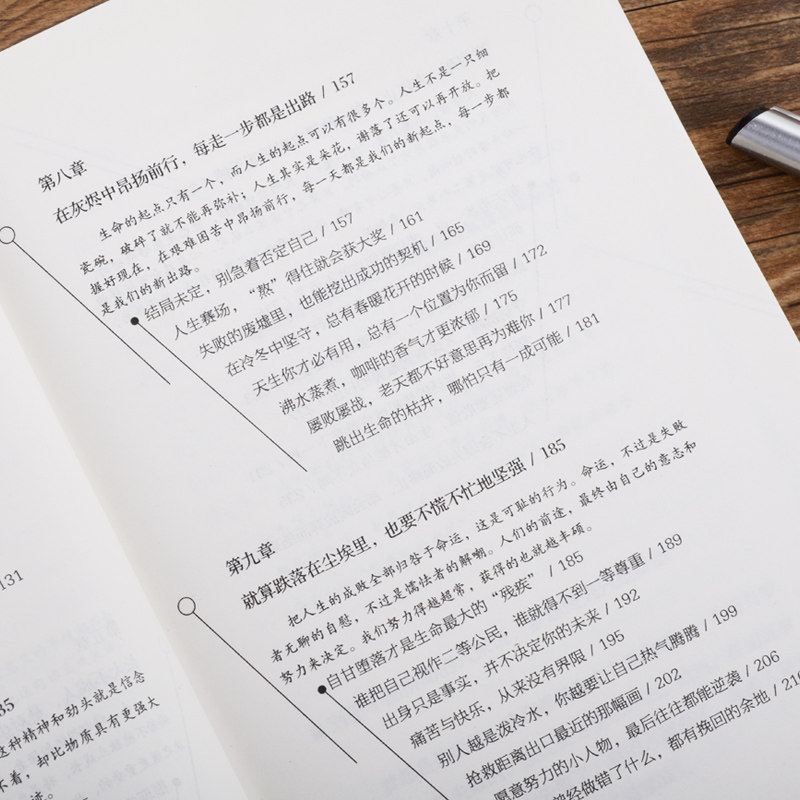 131
85
这种精神和劲头就是信念
不着，却比物质具有更强大
迹。
第八章
在灰烬中昂扬前行，每走一步都是出路 / 157
生命的起点只有一个，而人生的起点可以有很多个。人生不是一只细
瓷碗，破碎了就不能再弥补；人生其实是朵花，谢落了还可以再开放。把
握好现在，在艰难困苦中昂扬前行，每一天都是我们的新起点，每一步都
是我们的新出路。
结局未定，别急着否定自己 / 157
人生赛场，“熬”得住就会获大奖 / 161
失败的废墟里，也能挖出成功的契机 / 165
在冷冬中坚守，总有春暖花开的时候 / 169
天生你才必有用，总有一个位置为你而留 / 172
沸水蒸煮，咖啡的香气才更浓郁 / 175
屡败屡战，老天都不好意思再为难你 / 177
跳出生命的枯井，哪怕只有一成可能 / 181
第九章
就算跌落在尘埃里，也要不慌不忙地坚强 / 185
把人生的成败全部归咎于命运，这是可耻的行为。命运，不过是失败
者无聊的自慰，不过是懦怯者的解嘲。人们的前途，最终由自己的意志和
努力来决定。我们努力得越超常，获得的也就越丰硕。
自甘堕落才是生命最大的“残疾” / 185
谁把自己视作二等公民，谁就得不到一等尊重 / 189
出身只是事实，并不决定你的未来 / 192
痛苦与快乐，从来没有界限 / 195
别人越是泼冷水，你越要让自己热气腾腾 / 199
抢救距离出口最近的那幅画 / 202
愿意努力的小人物，最后往往都能逆袭 / 206
曾经做错了什么，都有挽回的余地 / 210